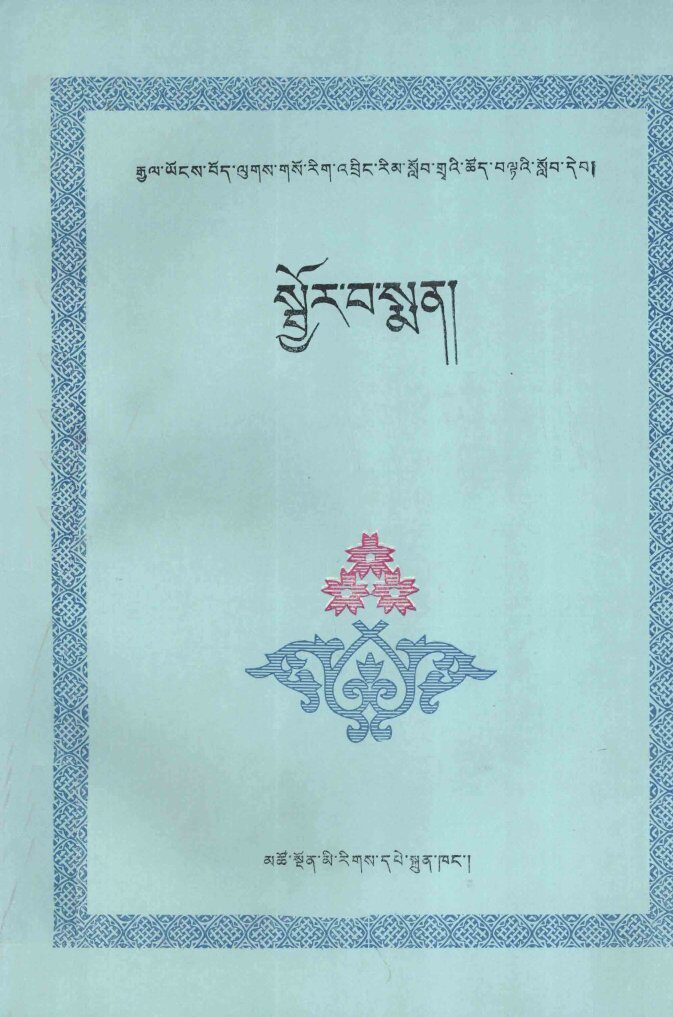 རྒྱལ་ཡོངས་བོད་ལུགས་གསོ་རིག་འབྲིང་རིམ་སློབ་གྲྭའི་ཚོད་བལྟའི་སློབ་དེབ།
སྦྱོར་བ་སྨན།
མཚོ་སྔོན་མི་རིགས་དཔེ་སྐྲུན་ཁང་།